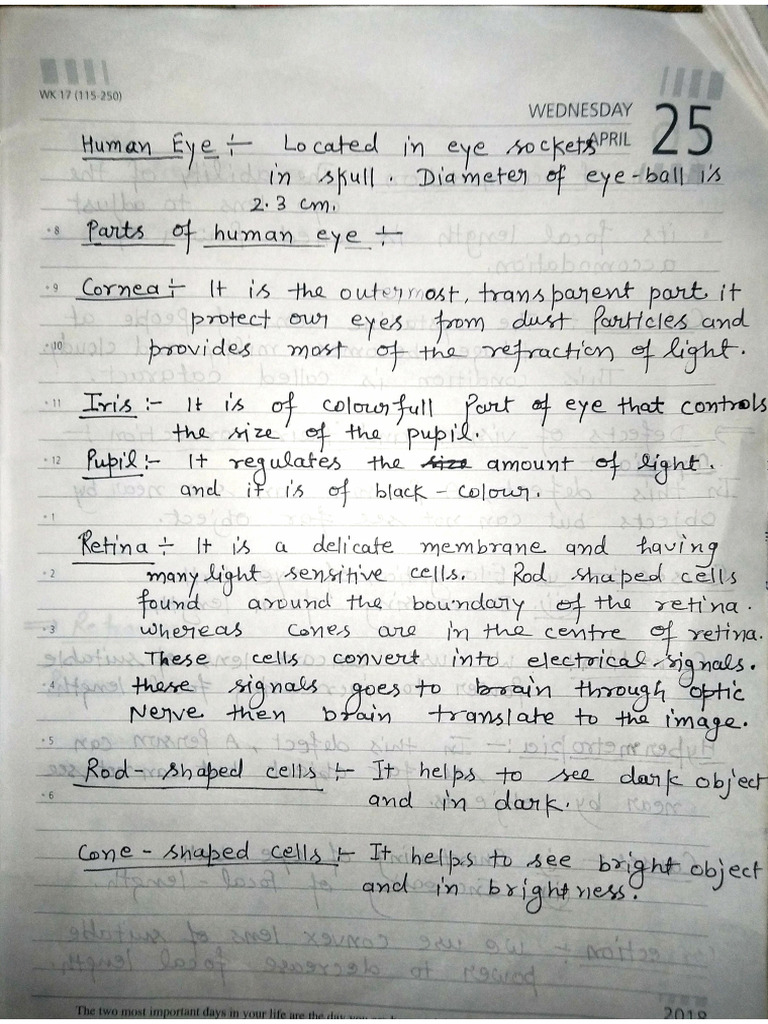 WK 17 (115-250)
WEDNESDAY
APRIL 25
Human Eye :- Located in eye sockets
in skull. Diameter of eye-ball is
2.3 cm.
8 Parts of human eye :-
9 Cornea :- It is the outermost, transparent part it
protect our eyes from dust Particles and
10 provides most of the refraction of light.
11 Iris :- It is of colourfull Part of eye that controls
the size of the pupil.
12 Pupil :- It regulates the size amount of light.
and it is of black-colour.
1
Retina :- It is a delicate membrane and having
2 many light sensitive cells. Rod shaped cells
found around the boundary of the retina.
3 whereas cones are in the centre of retina.
These cells convert into electrical signals.
4 these signals goes to brain through optic
Nerve then brain translate to the image.
5
Rod-shaped cells :- It helps to see dark object
6 and in dark.
Cone-shaped cells :- It helps to see bright object
and in brightness.
The two most important days in your life are the day you
2018